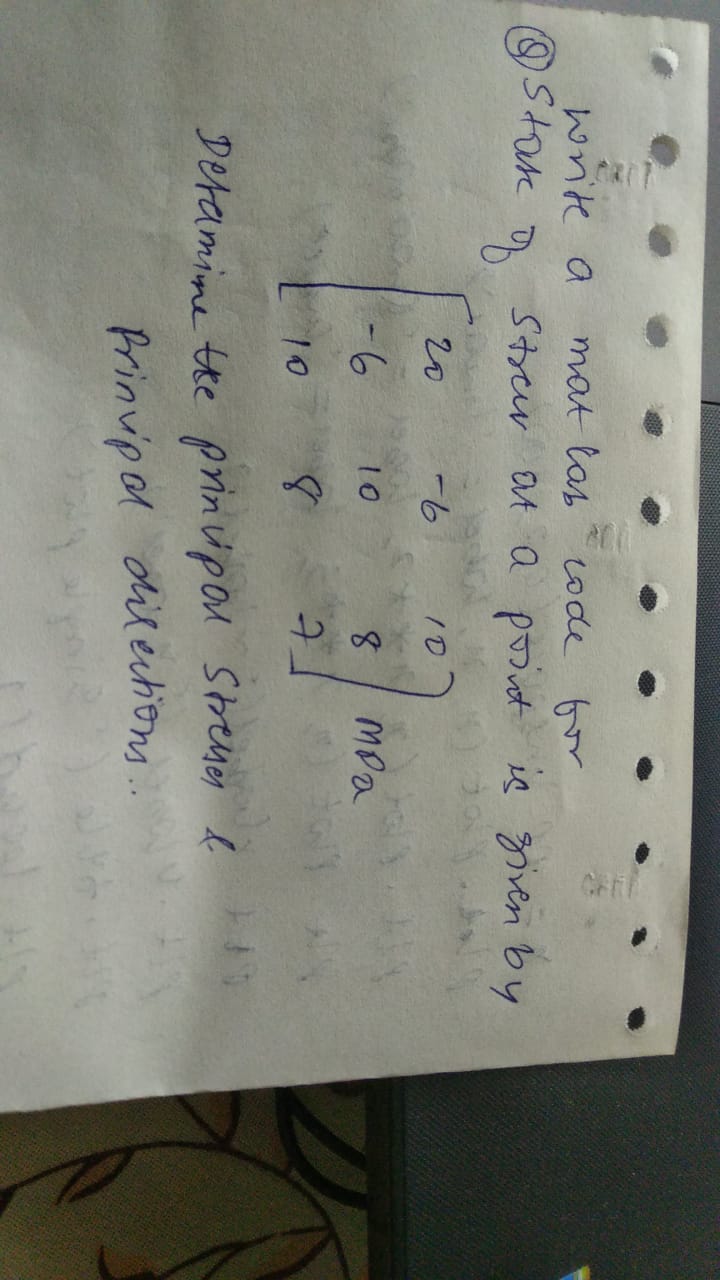 Write a matlab code for
Q State of stress at a point is given by
20 -6 10
-6 10 8
10 8 7 MPa
Determine the principal stresses &
Principal directions..